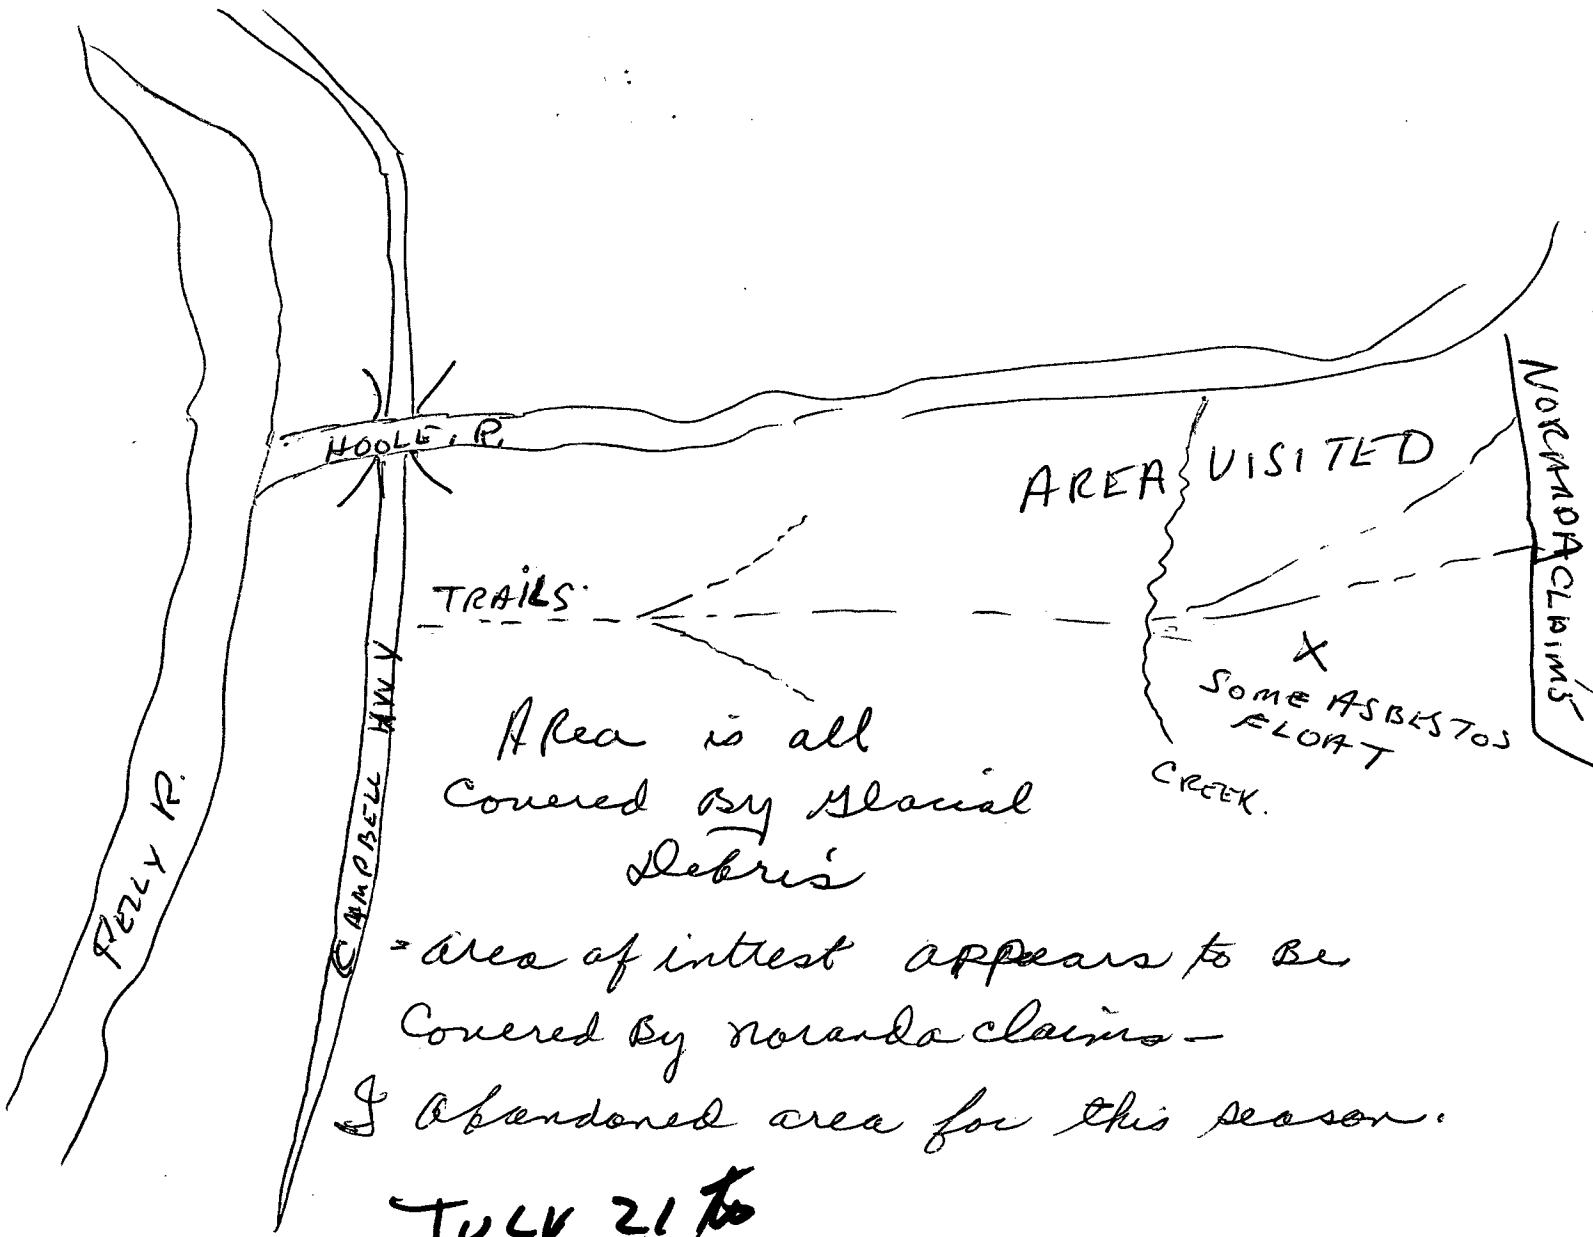 HOOLE. R.
AREA VISITED
NORANDA CLAIMS
TRAILS
X
SOME ASBESTOS
FLOAT
CREEK.
PELLY R.
CAMPBELL HWY
Area is all
Covered By Glacial
Debris
- area of intrest appears to Be
Covered By noranda claims -
I abandoned area for this season.
JULY 21 to